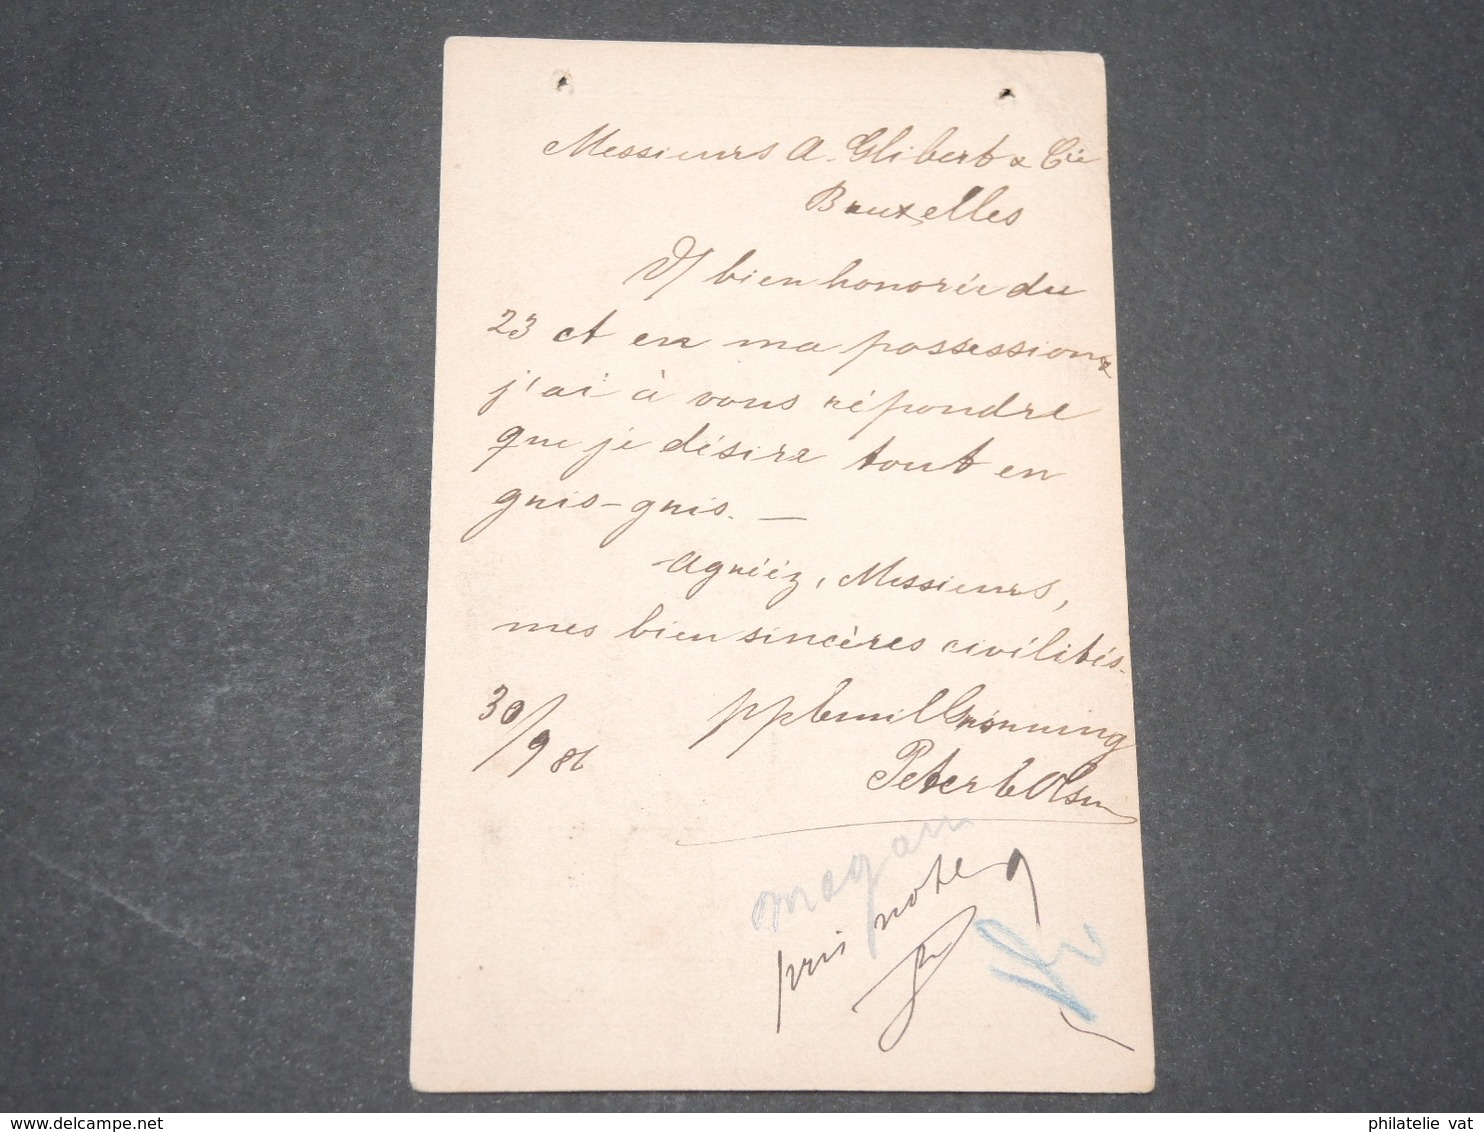 Messieurs A. Glibert & Cie
Bruxelles
V/ bien honorée du
23 ct en ma possession
j'ai à vous répondre
que je désire tout en
gris-gris. —
Agréez, Messieurs,
mes bien sincères civilités.
30/9 86
pp Emil Grönning
Peter E Olsen
magasin
pris note
philatelie vat
delcampe.net